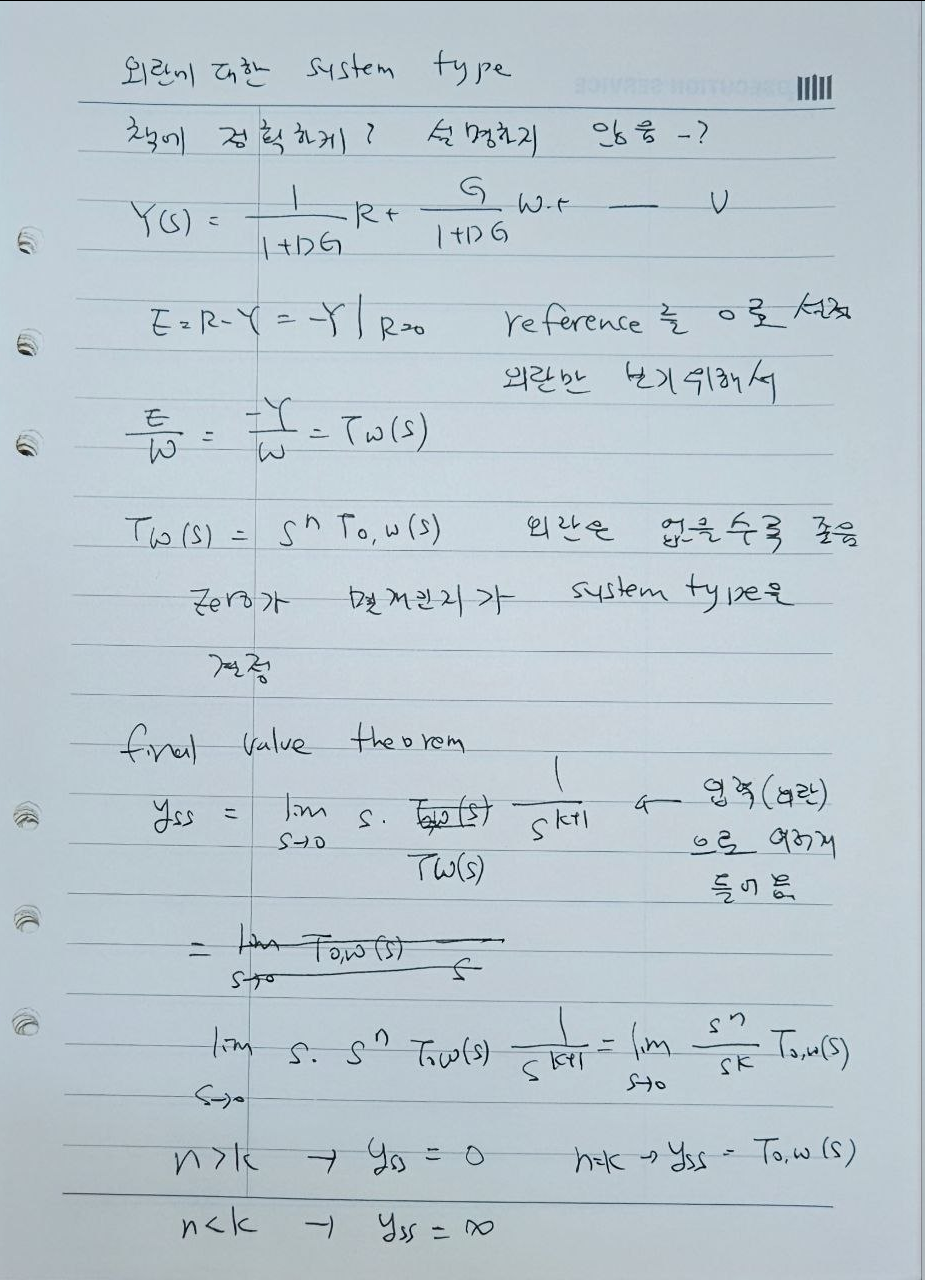 외란에 대한 system type
책에 정확하게? 설명하지 않음-?
Y(s) = 1/(1+DG) R + G/(1+DG) W + — V
E = R-Y = -Y|R=0 reference를 0으로 설정
외란만 보기위해서
E/W = -Y/W = Tw(s)
Tw(s) = s^n To,w(s) 외란은 없을수록 좋음
Zero가 몇개인지가 system type을
결정
final value theorem
yss = lim s→0 s. To,w(s) 1/s^k+1 ← 입력(외란)
Tw(s) 으로 여러개
들어옴
= lim s→0 To,w(s)/s
lim s→0 s. s^n To,w(s) 1/s^k+1 = lim s→0 s^n/s^k To,w(s)
n>k → yss = 0 n=k → yss = To,w(s)
n<k → yss = ∞